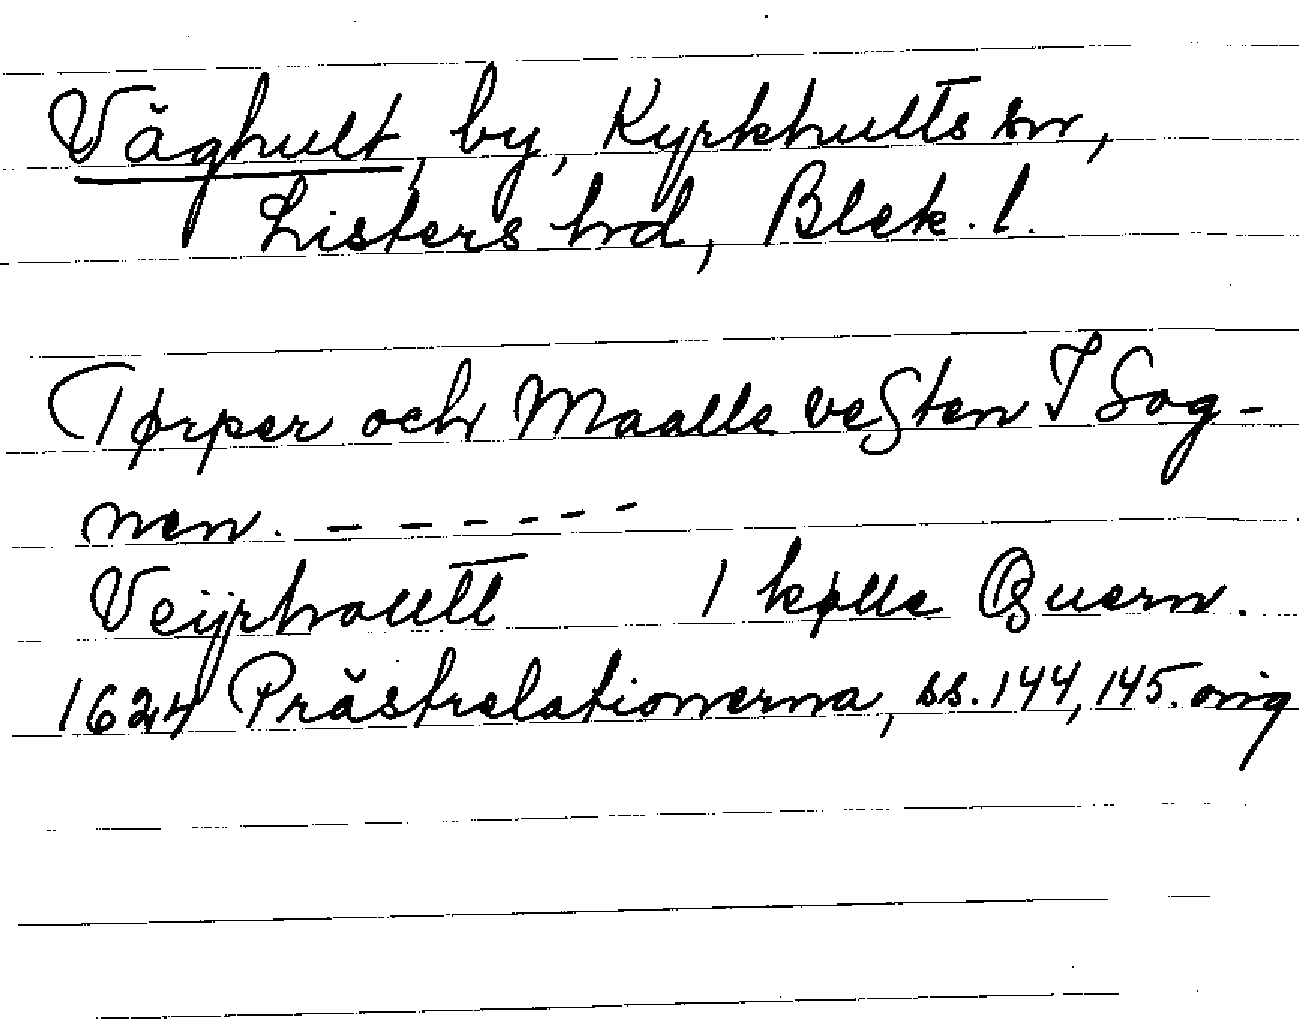 Väghult, by, Kyrkhults sn,
Listers hrd, Blek. l.
Tørper och Maalle veSten I Sog-
nen. - - - - - -
Veÿrhoultt 1 kølle Quern.
1624 Prästrelationerna, ss. 144, 145. orig